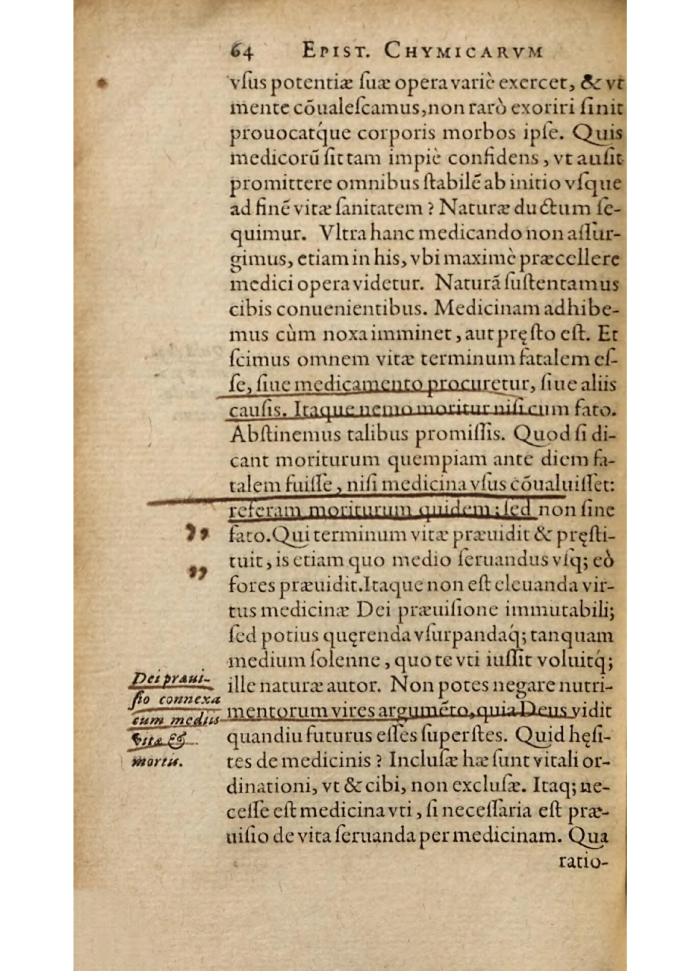 64 EPIST. CHYMICARVM
vſus potentiæ ſuæ opera variè exercet, & vt
mente cōualeſcamus, non rarò exoriri ſinit
prouocatq́ue corporis morbos ipſe. Quis
medicorū ſit tam impiè confidens, vt auſit
promittere omnibus ſtabilē ab initio vſque
ad finē vitæ ſanitatem? Naturæ ductum ſe-
quimur. Vltra hanc medicando non aſſur-
gimus, etiam in his, vbi maximè præcellere
medici opera videtur. Naturā ſuſtentamus
cibis conuenientibus. Medicinam adhibe-
mus cùm noxa imminet, aut pręſto eſt. Et
ſcimus omnem vitæ terminum fatalem eſ-
ſe, ſiue medicamento procuretur, ſiue aliis
cauſis. Itaque nemo moritur niſi cum fato.
Abſtinemus talibus promiſſis. Quod ſi di-
cant moriturum quempiam ante diem fa-
talem fuiſſe, niſi medicina vſus cōualuiſſet:
referam moriturum quidem; ſed non ſine
fato. Qui terminum vitæ præuidit & pręſti-
tuit, is etiam quo medio ſeruandus vſq; eò
fores præuidit. Itaque non eſt eleuanda vir-
tus medicinæ Dei præuiſione immutabili;
ſed potius quęrenda vſurpandaq́; tanquam
medium ſolenne, quo te vti iuſſit voluitq́;
ille naturæ autor. Non potes negare nutri-
mentorum vires argumēto, quia Deus vidit
quandiu futurus eſſes ſuperſtes. Quid hęſi-
tes de medicinis? Incluſæ hæ ſunt vitali or-
dinationi, vt & cibi, non excluſæ. Itaq; ne-
ceſſe eſt medicina vti, ſi neceſſaria eſt præ-
uiſio de vita ſeruanda per medicinam. Qua
ratio-
Dei præui-
ſio connexa
cum mediis
vitæ &
mortis.